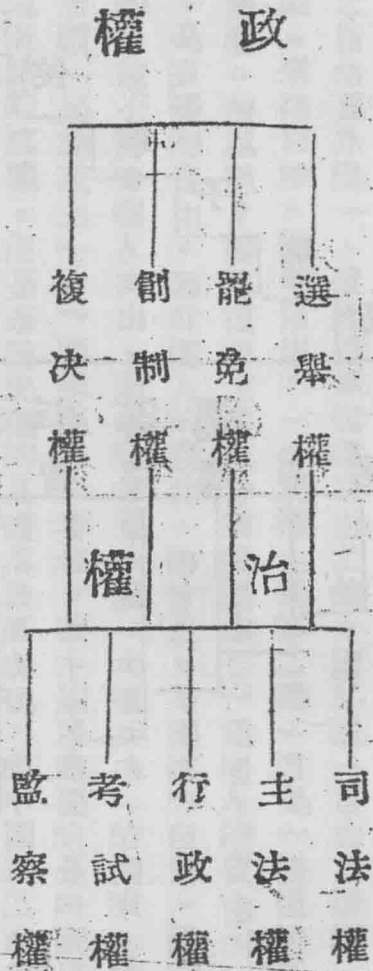 政權
選舉權
罷免權
創制權
複决權
治權
司法權
主法權
行政權
考試權
監察權